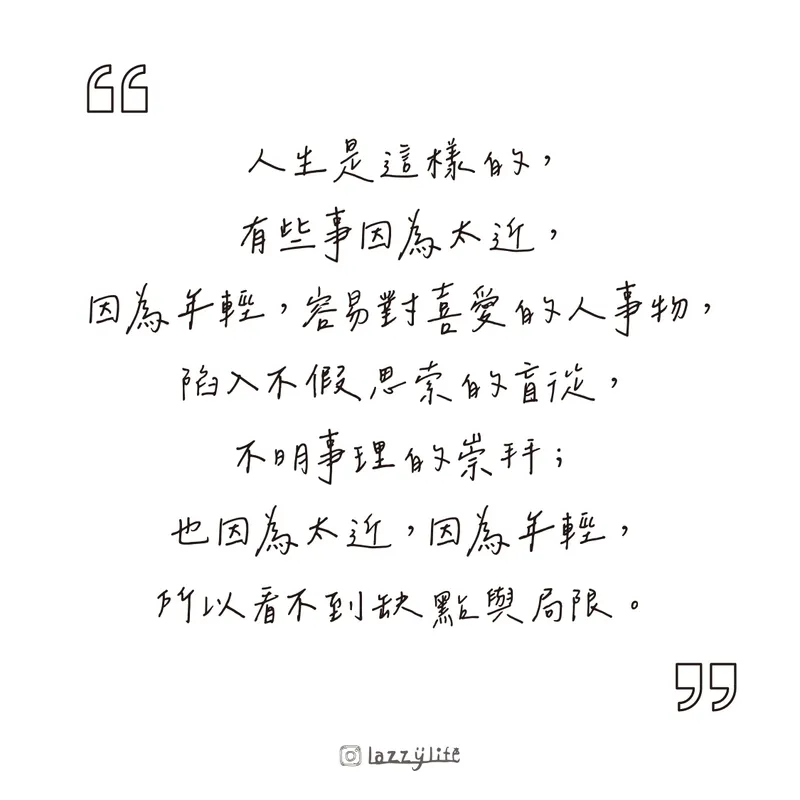 人生是這樣的，
有些事因為太近，
因為年輕，容易對喜愛的人事物，
陷入不假思索的盲從，
不明事理的崇拜；
也因為太近，因為年輕，
所以看不到缺點與局限。
lazzylife